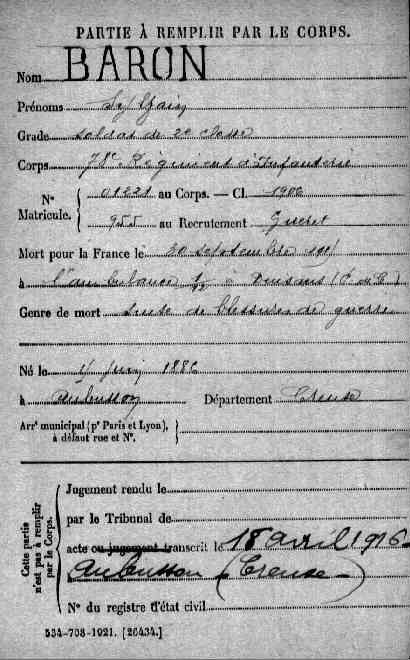 PARTIE À REMPLIR PAR LE CORPS.
Nom BARON
Prénoms Sylvain
Grade soldat de 2e classe
Corps 78e Régiment d'Infanterie
N° Matricule. 01221 au Corps. — Cl. 1906
955 au Recrutement Guéret
Mort pour la France le 20 septembre
à l'ambulance à Duisans (P. de C.)
Genre de mort suite de blessures de guerre
Né le 4 Juin 1886
à Aubusson Département Creuse
Arr' municipal (p' Paris et Lyon), à défaut rue et N°.
Cette partie n'est pas à remplir par le Corps.
Jugement rendu le
par le Tribunal de
acte ou jugement transcrit le 18 avril 1916
Aubusson (Creuse)
N° du registre d'état civil
534-708-1921. [26434.]